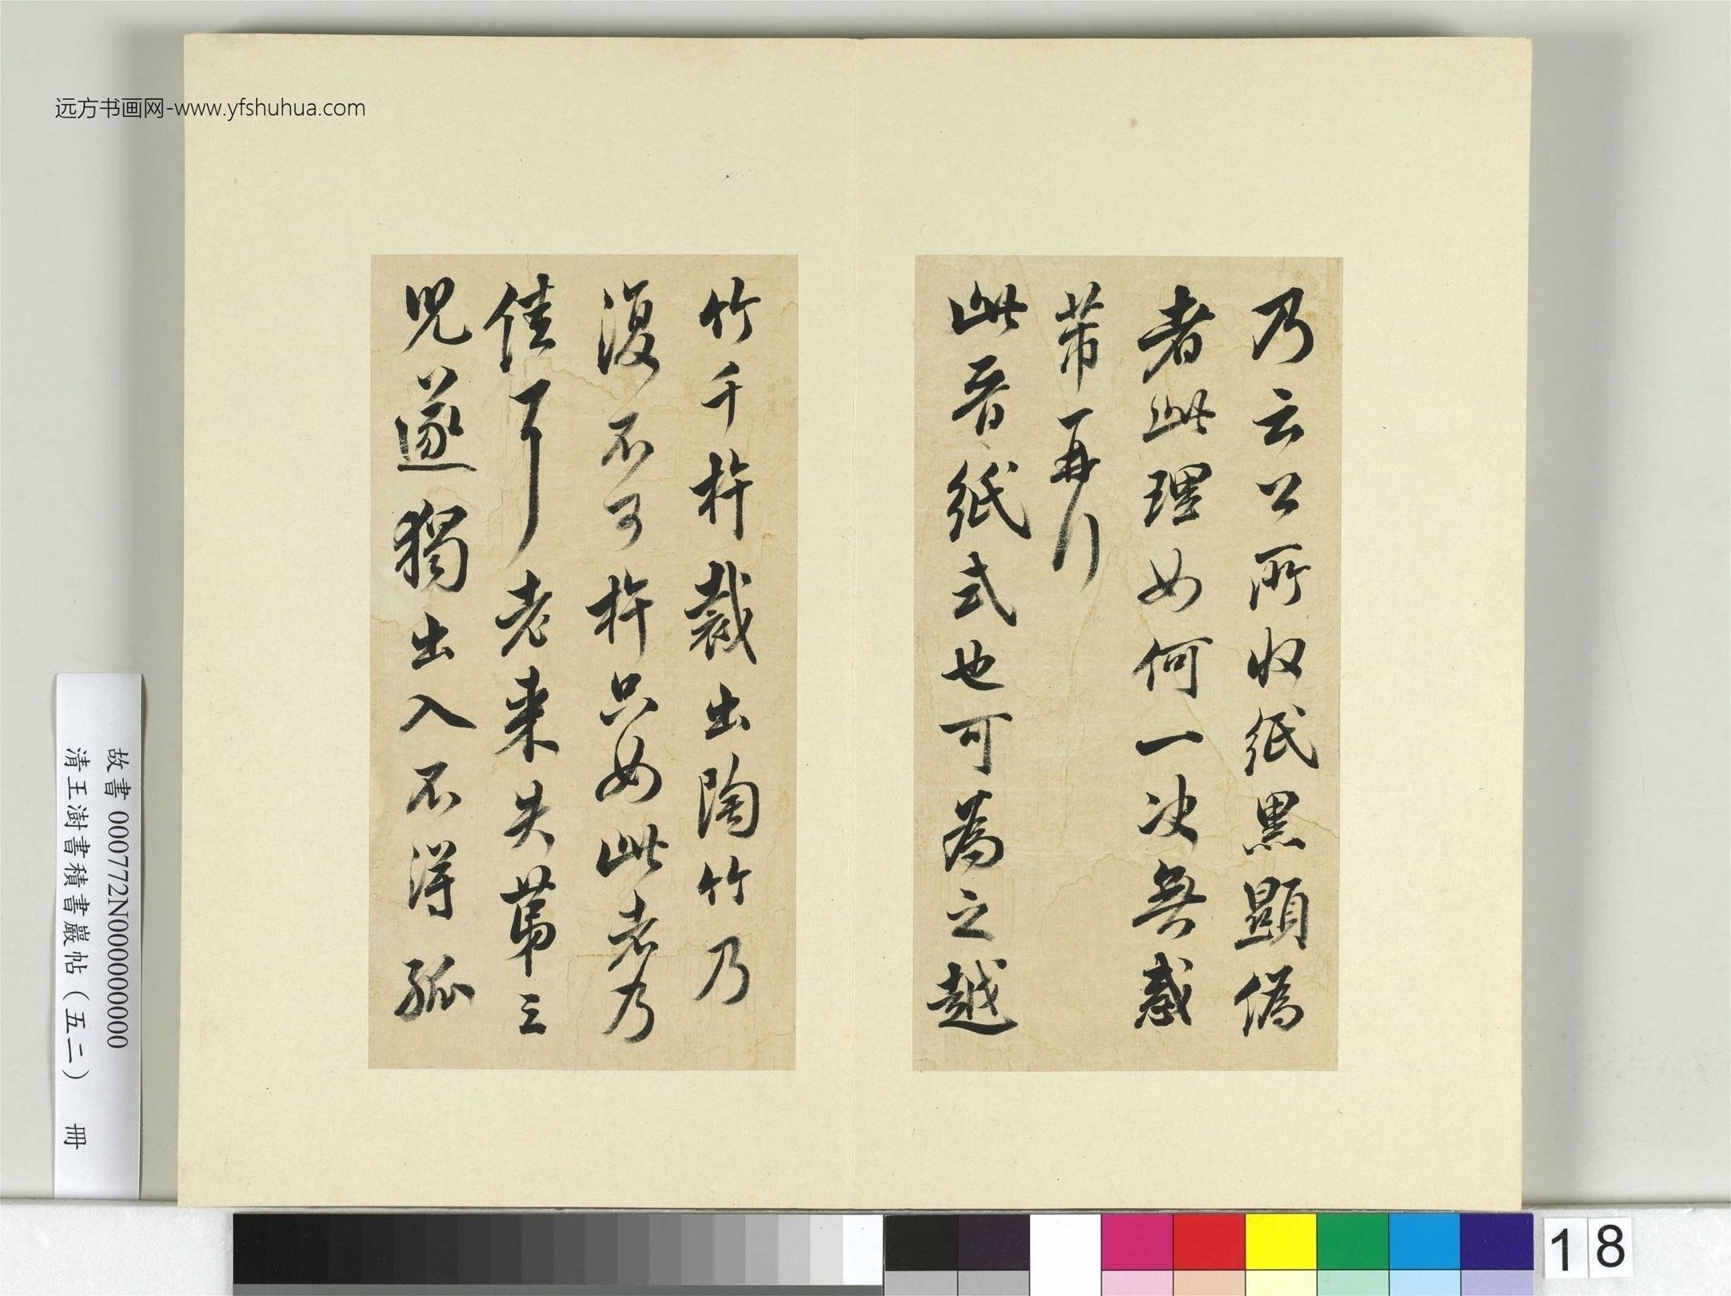 远方书画网-www.yfshuhua.com
乃云公所收紙黑顯偽
者此理如何一決無惑
芾再行
此晉紙式也可為之越
竹千杵裁出陶竹乃
復不可杵只如此者乃
佳耳老来失第三
児遂獨出入不得孤
故書 000772N000000000
清王澍書積書巖帖(五二) 冊
18